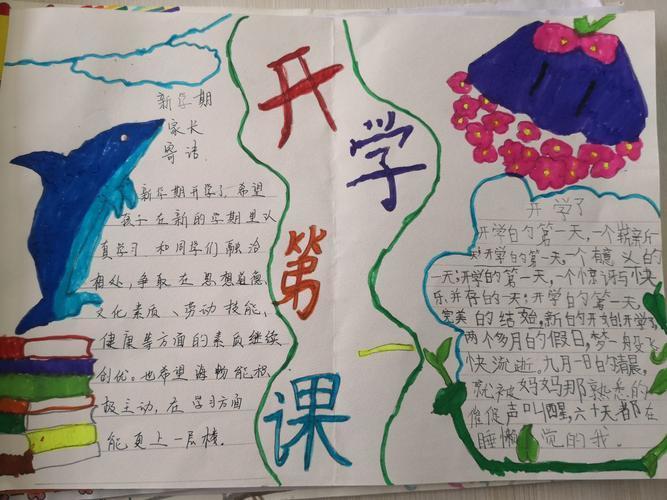 开学第一课
新学期
家长
寄语
新学期开学了,希望
孩子在新的学期里认
真学习 和同学们融洽
相处,争取在思想道德、
文化素质、劳动技能、
健康等方面的素质继续
创优。也希望海畅能积
极主动,在学习方面
能更上一层楼.
开学了
开学的第一天,一个崭新
开学的第一天,一个有意义的
一天;开学的第一天,一个惊讶与快
乐,并存的一天;开学的第一天,
完美的结始,新的开始!开学
两个多月的假日,梦一般飞
快流逝。九月一日的清晨,
就被妈妈那熟悉的
催促声叫醒,六十天都在
睡懒觉的我。